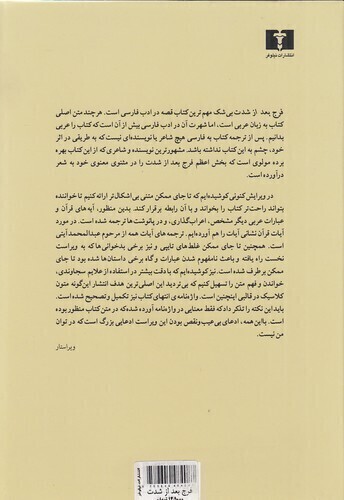 انتشارات نیلوفر
فرج بعد از شدت بی‌شک مهم‌ترین کتاب قصه در ادب فارسی است. هرچند متن اصلی
کتاب به زبان عربی است، اما شهرت آن در ادب فارسی بیش از آن است که کتاب را عربی
بدانیم. پس از ترجمه کتاب به فارسی هیچ شاعر یا نویسنده‌ای نیست که به طریقی در اثر
خود، چشم به این کتاب نداشته باشد. مشهورترین نویسنده و شاعری که از این کتاب بهره
برده مولوی است که بخش اعظم فرج بعد از شدت را در مثنوی معنوی خود به شعر
درآورده است.
در ویرایش کنونی کوشیده‌ایم که تا جای ممکن متنی بی‌اشکال‌تر ارائه کنیم تا خواننده
بتواند راحت‌تر کتاب را بخواند و با آن رابطه برقرار کند. بدین منظور، آیه‌های قرآن و
عبارات عربی دیگر مشخص، اعراب‌گذاری، و در پانوشت‌ها ترجمه شده است. در مورد
آیات قرآن نشانی آیات را هم آورده‌ایم. ترجمه‌های آیات همه از مرحوم عبدالمحمد آیتی
است. همچنین تا جای ممکن غلط‌های تایپی و نیز برخی بدخوانی‌ها که به ویراست
نخست راه یافته و باعث نامفهوم شدن عبارات و گاه برخی داستان‌ها شده بود تا جای
ممکن برطرف شده است. نیز کوشیده‌ایم که با دقت بیشتر در استفاده از علایم سجاوندی،
خواندن و فهم متن را تسهیل کنیم که بی‌تردید این اصلی‌ترین هدف انتشار این‌گونه متون
کلاسیک در قالبی اینچنین است. واژه‌نامه‌ی انتهای کتاب نیز تکمیل و تصحیح شده است.
باید این نکته را تذکر داد که فقط معنایی در واژه‌نامه آورده شده که در متن کتاب منظور بوده
است. با این همه، ادعای بی‌عیب و نقص بودن این ویراست ادعایی بزرگ است که در توان
من نیست.
ویراستار
فرج بعد از شدت